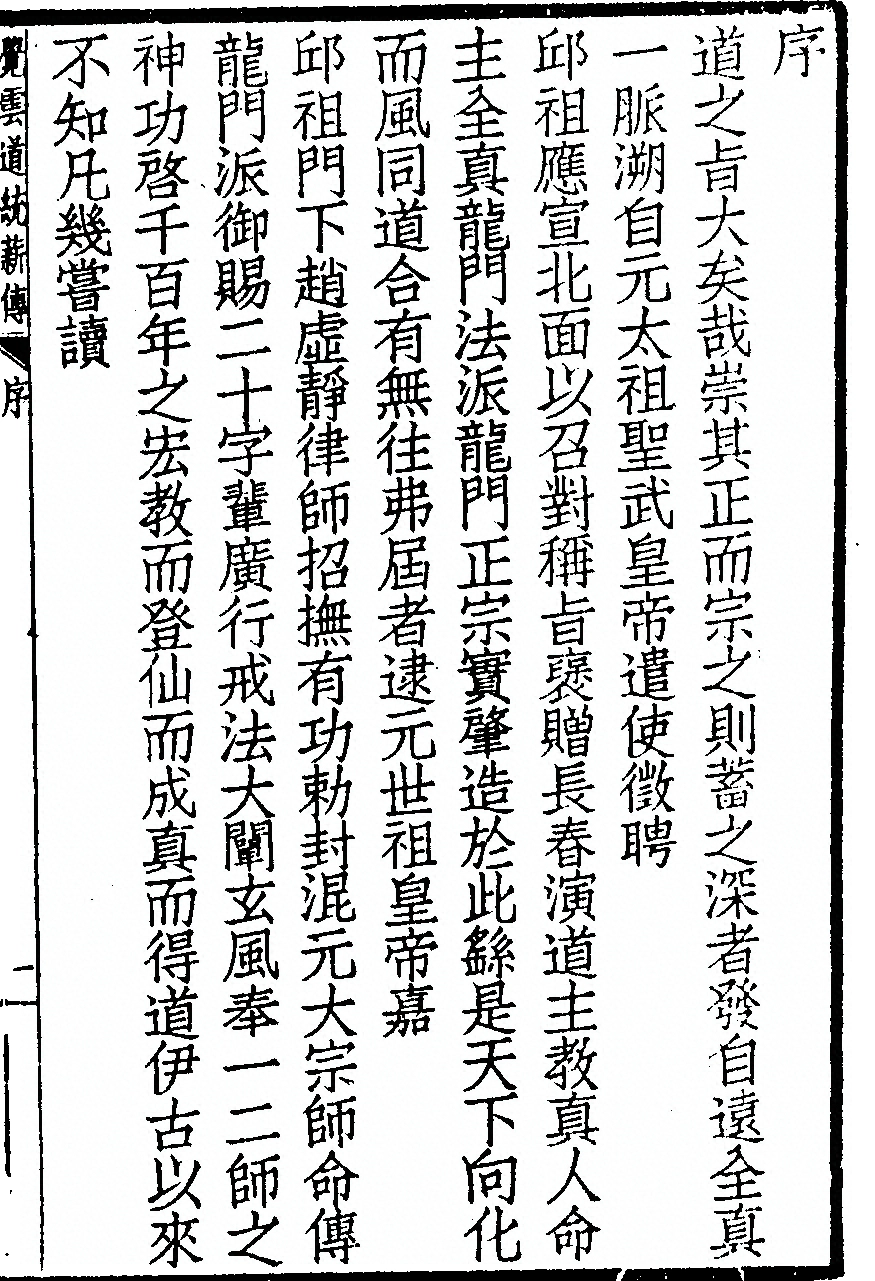 序
道之旨大矣哉崇其正而宗之則蓄之深者發自遠全真
一脈溯自元太祖聖武皇帝遣使徵聘
邱祖應宣北面以召對稱旨褒贈長春演道主教真人命
主全真龍門法派龍門正宗實肇造於此繇是天下向化
而風同道合有無往弗屆者逮元世祖皇帝嘉
邱祖門下趙虛靜律師招撫有功勅封混元大宗師命傳
龍門派御賜二十字輩廣行戒法大闡玄風奉一二師之
神功啓千百年之宏教而登仙而成真而得道伊古以來
不知凡幾嘗讀
覺雲道統薪傳
序
一